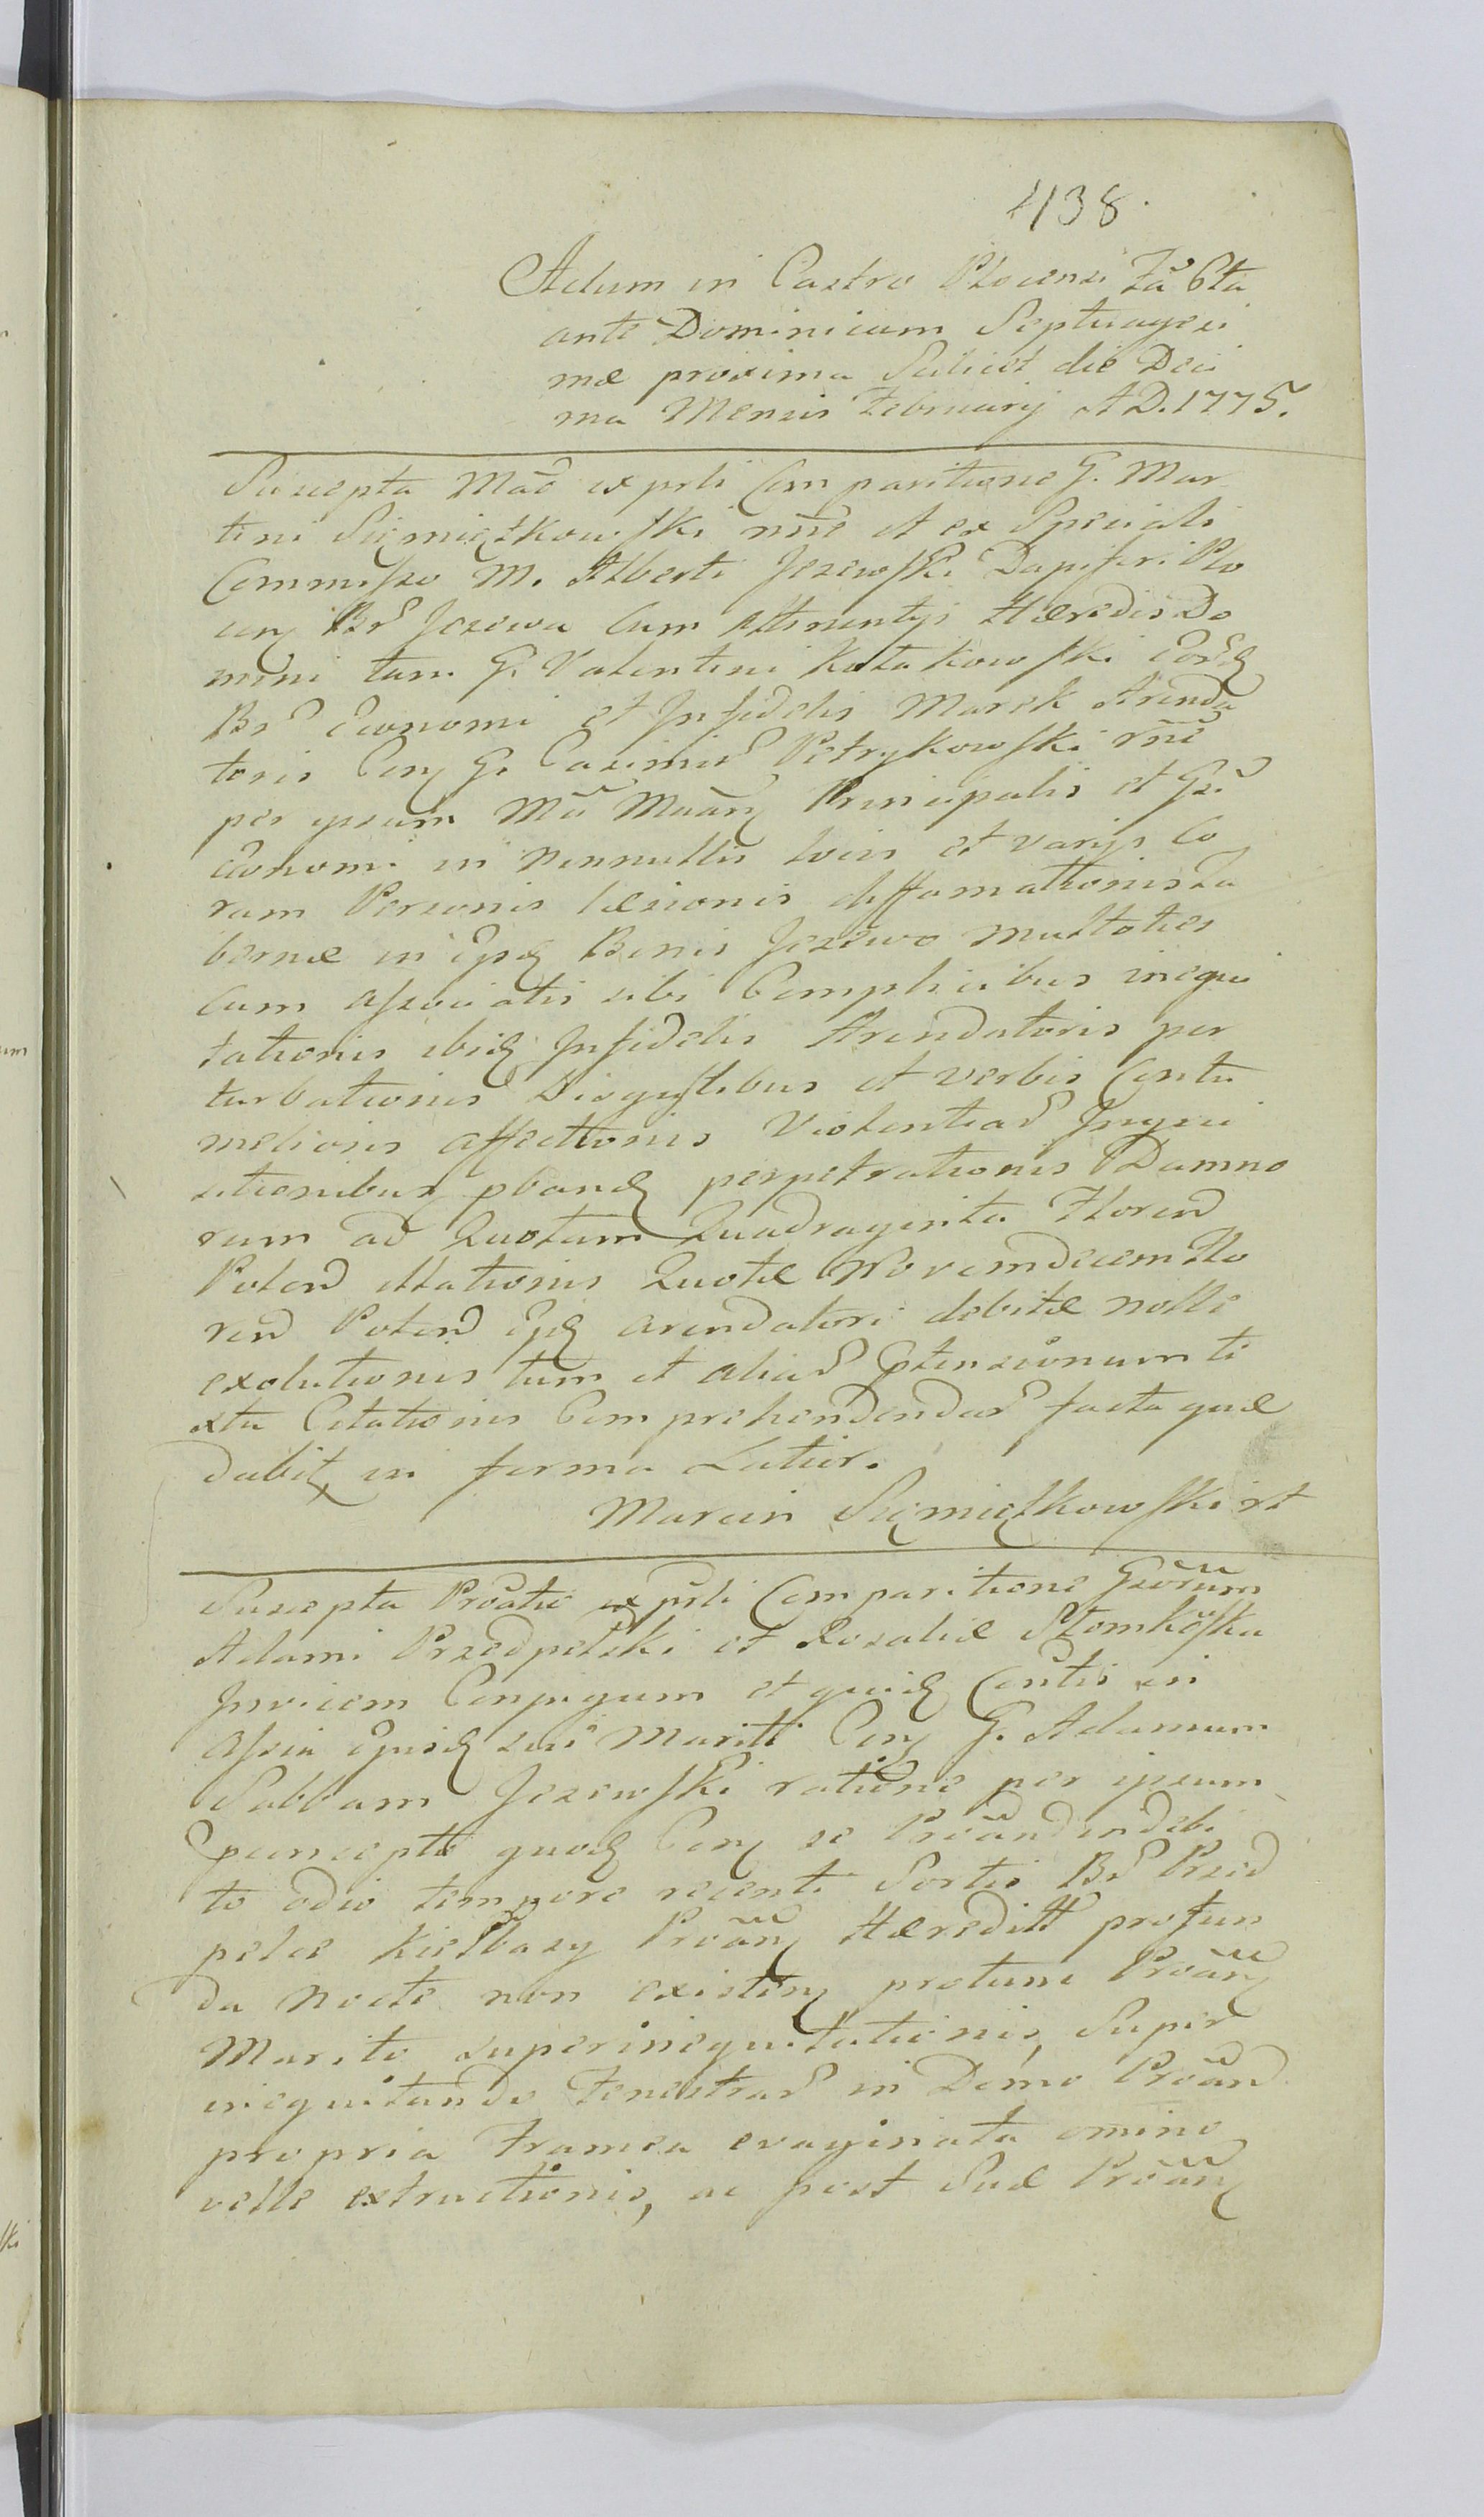 438.
Actum in Castro Plocensi Fa 6ta
ante Dominicam Septuagesi
mæ proxima Scilicet die Deci
ma Mensis February A D. 1775.
Suscepta Mad ex prli Comparitione G. Mar
tini Siemiątkowski nne et ex Speciali
Commisso M. Alberti Jezewski Dapiferi Plo
cen Br Jezewa cum Attinentys Hæredis Do
mini tum G. Valentini Kołakowski
Br Œconomi et Infidelis Marek Arenda
toris Con G. Casimir Petrykowski rne
per ipsum Principalis et Gsi
Œconomi in nonnullis locis et varys Co
ram Personis læsionis diffamationis Ta
bernæ in Bonis Jezewo multoties
cum associatis sibi Complicibus inequi
tationis Infidelis Arendatoris per
turbationis et verbis Contu
meliosis affectionis Violentiar Inqui
sitionibus perpetrationis Damno
rum ad Quotam Quadraginta Floren
Polon illationis Quotæ Novemdecem Flo
ren Polon arendatori debitæ nolle
exolutionis tum et aliar Ptensionum te
xtu Citationis Comprehendendar facta quæ
dabit in forma Latior.
Marcin Siemiątkowski
Suscepta ex prli Comparitione Gsorum
Adami Przedpełski et Rosaliæ Słomkoska
Invicem Conjugum et Contis in
Assia sui Mariti Con G. Adamum
Sabbam Jezewski ratione per ipsum
percepto Con se indebi
to odio tempore recenti Sortis Br Przed
pelce Kiełbasy Hæredit profun
da nocte non existen protunc
Marito superinequitationis, Super
inequitando Fenestrar in Domo
propria Framea evaginata omino
velle extructionis, ac post Suæ